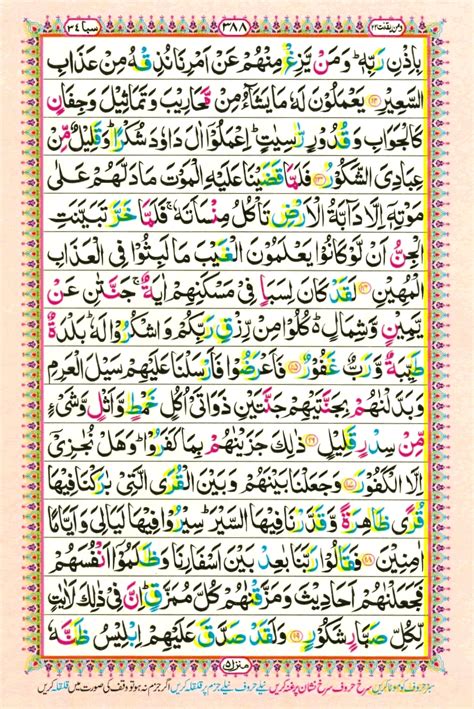 سبا ٣٤ ٣٨٨ ومن يقنت ٢٢
بِاِذْنِ رَبِّهٖ ؕ وَمَنْ يَّزِغْ مِنْهُمْ عَنْ اَمْرِنَا نُذِقْهُ مِنْ عَذَابِ
السَّعِيْرِ ۝۱۲ يَعْمَلُوْنَ لَهٗ مَا يَشَآءُ مِنْ مَّحَارِيْبَ وَتَمَاثِيْلَ وَجِفَانٍ
كَالْجَوَابِ وَقُدُوْرٍ رّٰسِيٰتٍ ؕ اِعْمَلُوْۤا اٰلَ دَاوٗدَ شُكْرًا ؕ وَقَلِيْلٌ مِّنْ
عِبَادِيَ الشَّكُوْرُ ۝۱۳ فَلَمَّا قَضَيْنَا عَلَيْهِ الْمَوْتَ مَا دَلَّهُمْ عَلٰى
مَوْتِهٖۤ اِلَّا دَآبَّةُ الْاَرْضِ تَاْكُلُ مِنْسَاَتَهٗ ۚ فَلَمَّا خَرَّ تَبَيَّنَتِ
الْجِنُّ اَنْ لَّوْ كَانُوْا يَعْلَمُوْنَ الْغَيْبَ مَا لَبِثُوْا فِي الْعَذَابِ
الْمُهِيْنِ ۝۱۴ لَقَدْ كَانَ لِسَبَاٍ فِيْ مَسْكَنِهِمْ اٰيَةٌ ۚ جَنَّتٰنِ عَنْ
يَّمِيْنٍ وَّشِمَالٍ ؕ۬ كُلُوْا مِنْ رِّزْقِ رَبِّكُمْ وَاشْكُرُوْا لَهٗ ؕ بَلْدَةٌ
طَيِّبَةٌ وَّرَبٌّ غَفُوْرٌ ۝۱۵ فَاَعْرَضُوْا فَاَرْسَلْنَا عَلَيْهِمْ سَيْلَ الْعَرِمِ
وَبَدَّلْنٰهُمْ بِجَنَّتَيْهِمْ جَنَّتَيْنِ ذَوَاتَيْ اُكُلٍ خَمْطٍ وَّاَثْلٍ وَّشَيْءٍ
مِّنْ سِدْرٍ قَلِيْلٍ ۝۱۶ ذٰلِكَ جَزَيْنٰهُمْ بِمَا كَفَرُوْا ؕ وَهَلْ نُجٰزِيْۤ
اِلَّا الْكَفُوْرَ ۝۱۷ وَجَعَلْنَا بَيْنَهُمْ وَبَيْنَ الْقُرَى الَّتِيْ بٰرَكْنَا فِيْهَا
قُرًى ظَاهِرَةً وَّقَدَّرْنَا فِيْهَا السَّيْرَ ؕ سِيْرُوْا فِيْهَا لَيَالِيَ وَاَيَّامًا
اٰمِنِيْنَ ۝۱۸ فَقَالُوْا رَبَّنَا بٰعِدْ بَيْنَ اَسْفَارِنَا وَظَلَمُوْۤا اَنْفُسَهُمْ
فَجَعَلْنٰهُمْ اَحَادِيْثَ وَمَزَّقْنٰهُمْ كُلَّ مُمَزَّقٍ ؕ اِنَّ فِيْ ذٰلِكَ لَاٰيٰتٍ
لِّكُلِّ صَبَّارٍ شَكُوْرٍ ۝۱۹ وَلَقَدْ صَدَّقَ عَلَيْهِمْ اِبْلِيْسُ ظَنَّهٗ
منزل ٥
سبز حروف کو موٹا کریں سرخ حروف سرخ نشان پر غنہ کریں نیلے حروف نیلے جزم پر قلقلہ کریں اگر جزم نہ ہو تو وقف کی صورت میں قلقلہ کریں